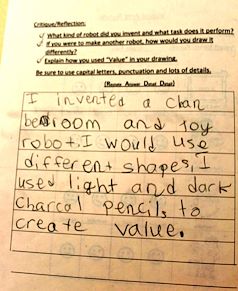 Critique/Reflection:
✓ What kind of robot did you invent and what task does it perform?
✓ If you were to make another robot, how would you draw it
differently?
✓ Explain how you used "Value" in your drawing.
Be sure to use capital letters, punctuation and lots of details.
(Restate Answer Detail Detail)
I invented a clan
bedroom and toy
robot. I would use
different shapes, I
used light and dark
charcal pencils to
create value.